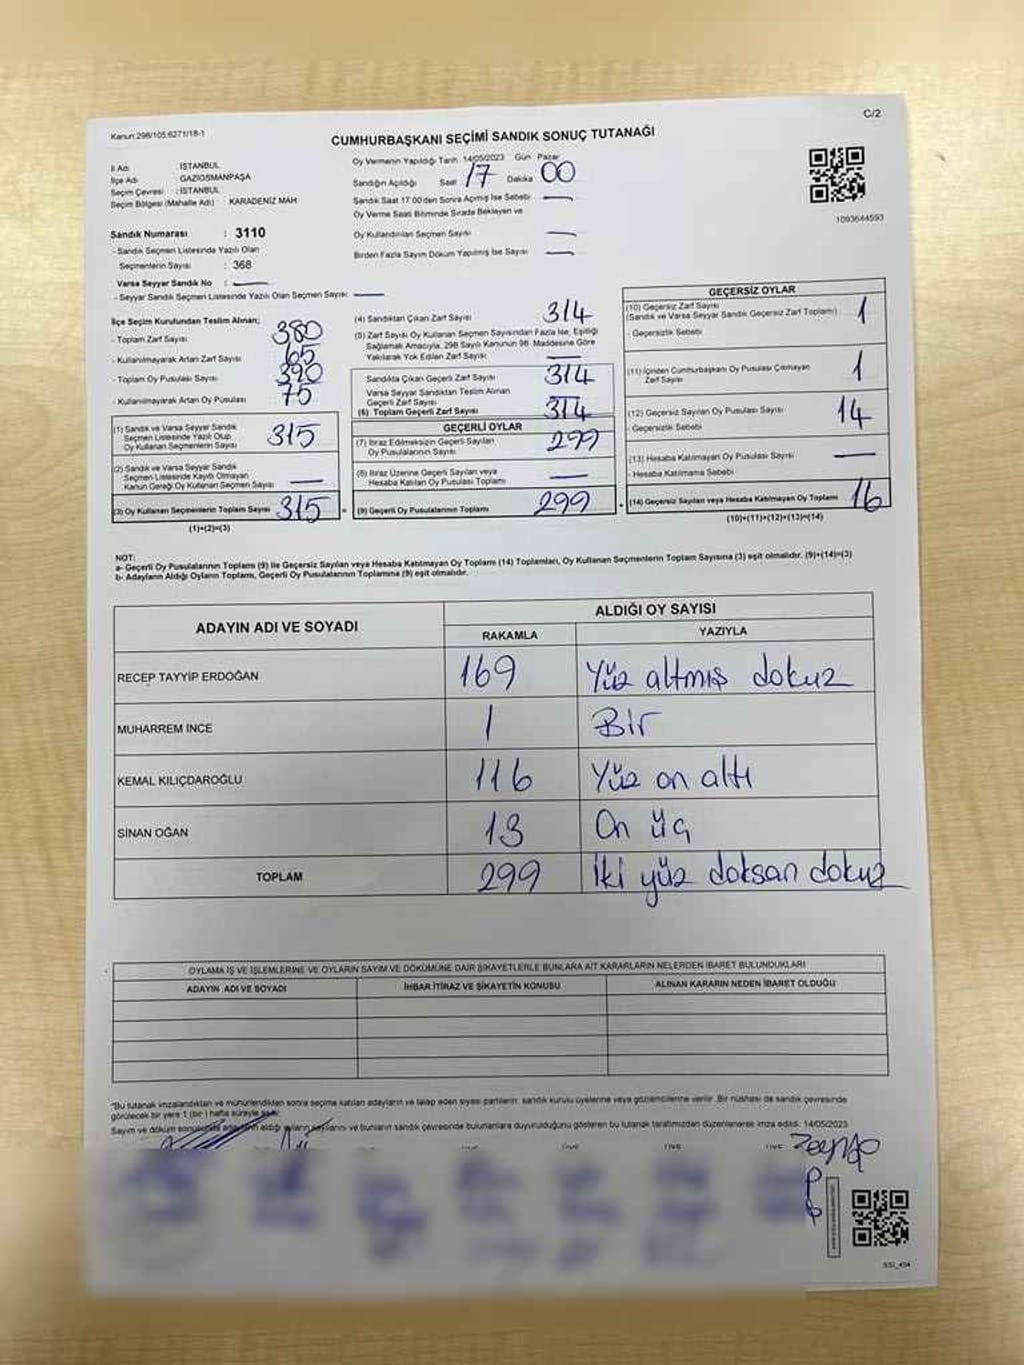 C/2
Kanun:298/105;6271/18-1
CUMHURBAŞKANI SEÇİMİ SANDIK SONUÇ TUTANAĞI
İl Adı : İSTANBUL
İlçe Adı : GAZİOSMANPAŞA
Seçim Çevresi : İSTANBUL
Seçim Bölgesi (Mahalle Adı) : KARADENİZ MAH.
Oy Vermenin Yapıldığı Tarih 14/05/2023 Gün Pazar
Sandığın Açıldığı Saat 17 Dakika 00
Sandık Saat 17.00'den Sonra Açmış İse Sebebi —
Oy Verme Saati Bitiminde Sırada Bekleyen ve
Oy Kullandırılan Seçmen Sayısı —
Birden Fazla Sayım Döküm Yapılmış İse Sayısı —
1093644593
Sandık Numarası : 3110
- Sandık Seçmen Listesinde Yazılı Olan
Seçmenlerin Sayısı : 368
Varsa Seyyar Sandık No : —
- Seyyar Sandık Seçmen Listesinde Yazılı Olan Seçmen Sayısı: —
İlçe Seçim Kurulundan Teslim Alınan;
- Toplam Zarf Sayısı 380
- Kullanılmayarak Artan Zarf Sayısı 65
- Toplam Oy Pusulası Sayısı 390
- Kullanılmayarak Artan Oy Pusulası 75
(1) Sandık ve Varsa Seyyar Sandık
Seçmen Listesinde Yazılı Olup
Oy Kullanan Seçmenlerin Sayısı 315
(2) Sandık ve Varsa Seyyar Sandık
Seçmen Listesinde Kayıtlı Olmayan
Kanun Gereği Oy Kullanan Seçmen Sayısı —
(3) Oy Kullanan Seçmenlerin Toplam Sayısı 315 =
(1)+(2)=(3)
(4) Sandıktan Çıkan Zarf Sayısı 314
(5) Zarf Sayısı Oy Kullanan Seçmen Sayısından Fazla İse, Eşitliği
Sağlamak Amacıyla, 298 Sayılı Kanunun 98. Maddesine Göre
Yakılarak Yok Edilen Zarf Sayısı —
Sandıkta Çıkan Geçerli Zarf Sayısı 314
Varsa Seyyar Sandıktan Teslim Alınan
Geçerli Zarf Sayısı —
(6) Toplam Geçerli Zarf Sayısı 314
GEÇERLİ OYLAR
(7) İtiraz Edilmeksizin Geçerli Sayılan
Oy Pusulalarının Sayısı 299
(8) İtiraz Üzerine Geçerli Sayılan veya
Hesaba Katılan Oy Pusulası Toplamı —
(9) Geçerli Oy Pusulalarının Toplamı 299 +
GEÇERSİZ OYLAR
(10) Geçersiz Zarf Sayısı
(Sandık ve Varsa Seyyar Sandık Geçersiz Zarf Toplamı) 1
- Geçersizlik Sebebi
(11) İçinden Cumhurbaşkanı Oy Pusulası Çıkmayan
Zarf Sayısı 1
(12) Geçersiz Sayılan Oy Pusulası Sayısı 14
- Geçersizlik Sebebi
(13) Hesaba Katılmayan Oy Pusulası Sayısı —
- Hesaba Katılmama Sebebi
(14) Geçersiz Sayılan veya Hesaba Katılmayan Oy Toplamı 16
(10)+(11)+(12)+(13)=(14)
NOT:
a- Geçerli Oy Pusulalarının Toplamı (9) ile Geçersiz Sayılan veya Hesaba Katılmayan Oy Toplamı (14) Toplamları, Oy Kullanan Seçmenlerin Toplam Sayısına (3) eşit olmalıdır. (9)+(14)=(3)
b- Adayların Aldığı Oyların Toplamı, Geçerli Oy Pusulalarının Toplamına (9) eşit olmalıdır.
ADAYIN ADI VE SOYADI ALDIĞI OY SAYISI
RAKAMLA YAZIYLA
RECEP TAYYİP ERDOĞAN 169 Yüz altmış dokuz
MUHARREM İNCE 1 Bir
KEMAL KILIÇDAROĞLU 116 Yüz on altı
SİNAN OĞAN 13 On üç
TOPLAM 299 İki yüz doksan dokuz
OYLAMA İŞ VE İŞLEMLERİNE VE OYLARIN SAYIM VE DÖKÜMÜNE DAİR ŞİKAYETLERLE BUNLARA AİT KARARLARIN NELERDEN İBARET BULUNDUKLARI
ADAYIN ADI VE SOYADI İHBAR İTİRAZ VE ŞİKAYETİN KONUSU ALINAN KARARIN NEDEN İBARET OLDUĞU
"Bu tutanak imzalandıktan ve mühürlendikten sonra seçime katılan adayların ve talep eden siyasi partilerin: sandık kurulu üyelerine veya gözlemcilerine verilir. Bir nüshası de sandık çevresinde
görülecek bir yere 1 (bir ) hafta süreyle asılır.
Sayım ve döküm sonucunda adayların aldığı oyların sayılarını ve bunların sandık çevresinde bulunanlara duyurulduğunu gösteren bu tutanak tarafımızdan düzenlenerek imza edildi. 14/05/2023
Zeynep
SSI_454